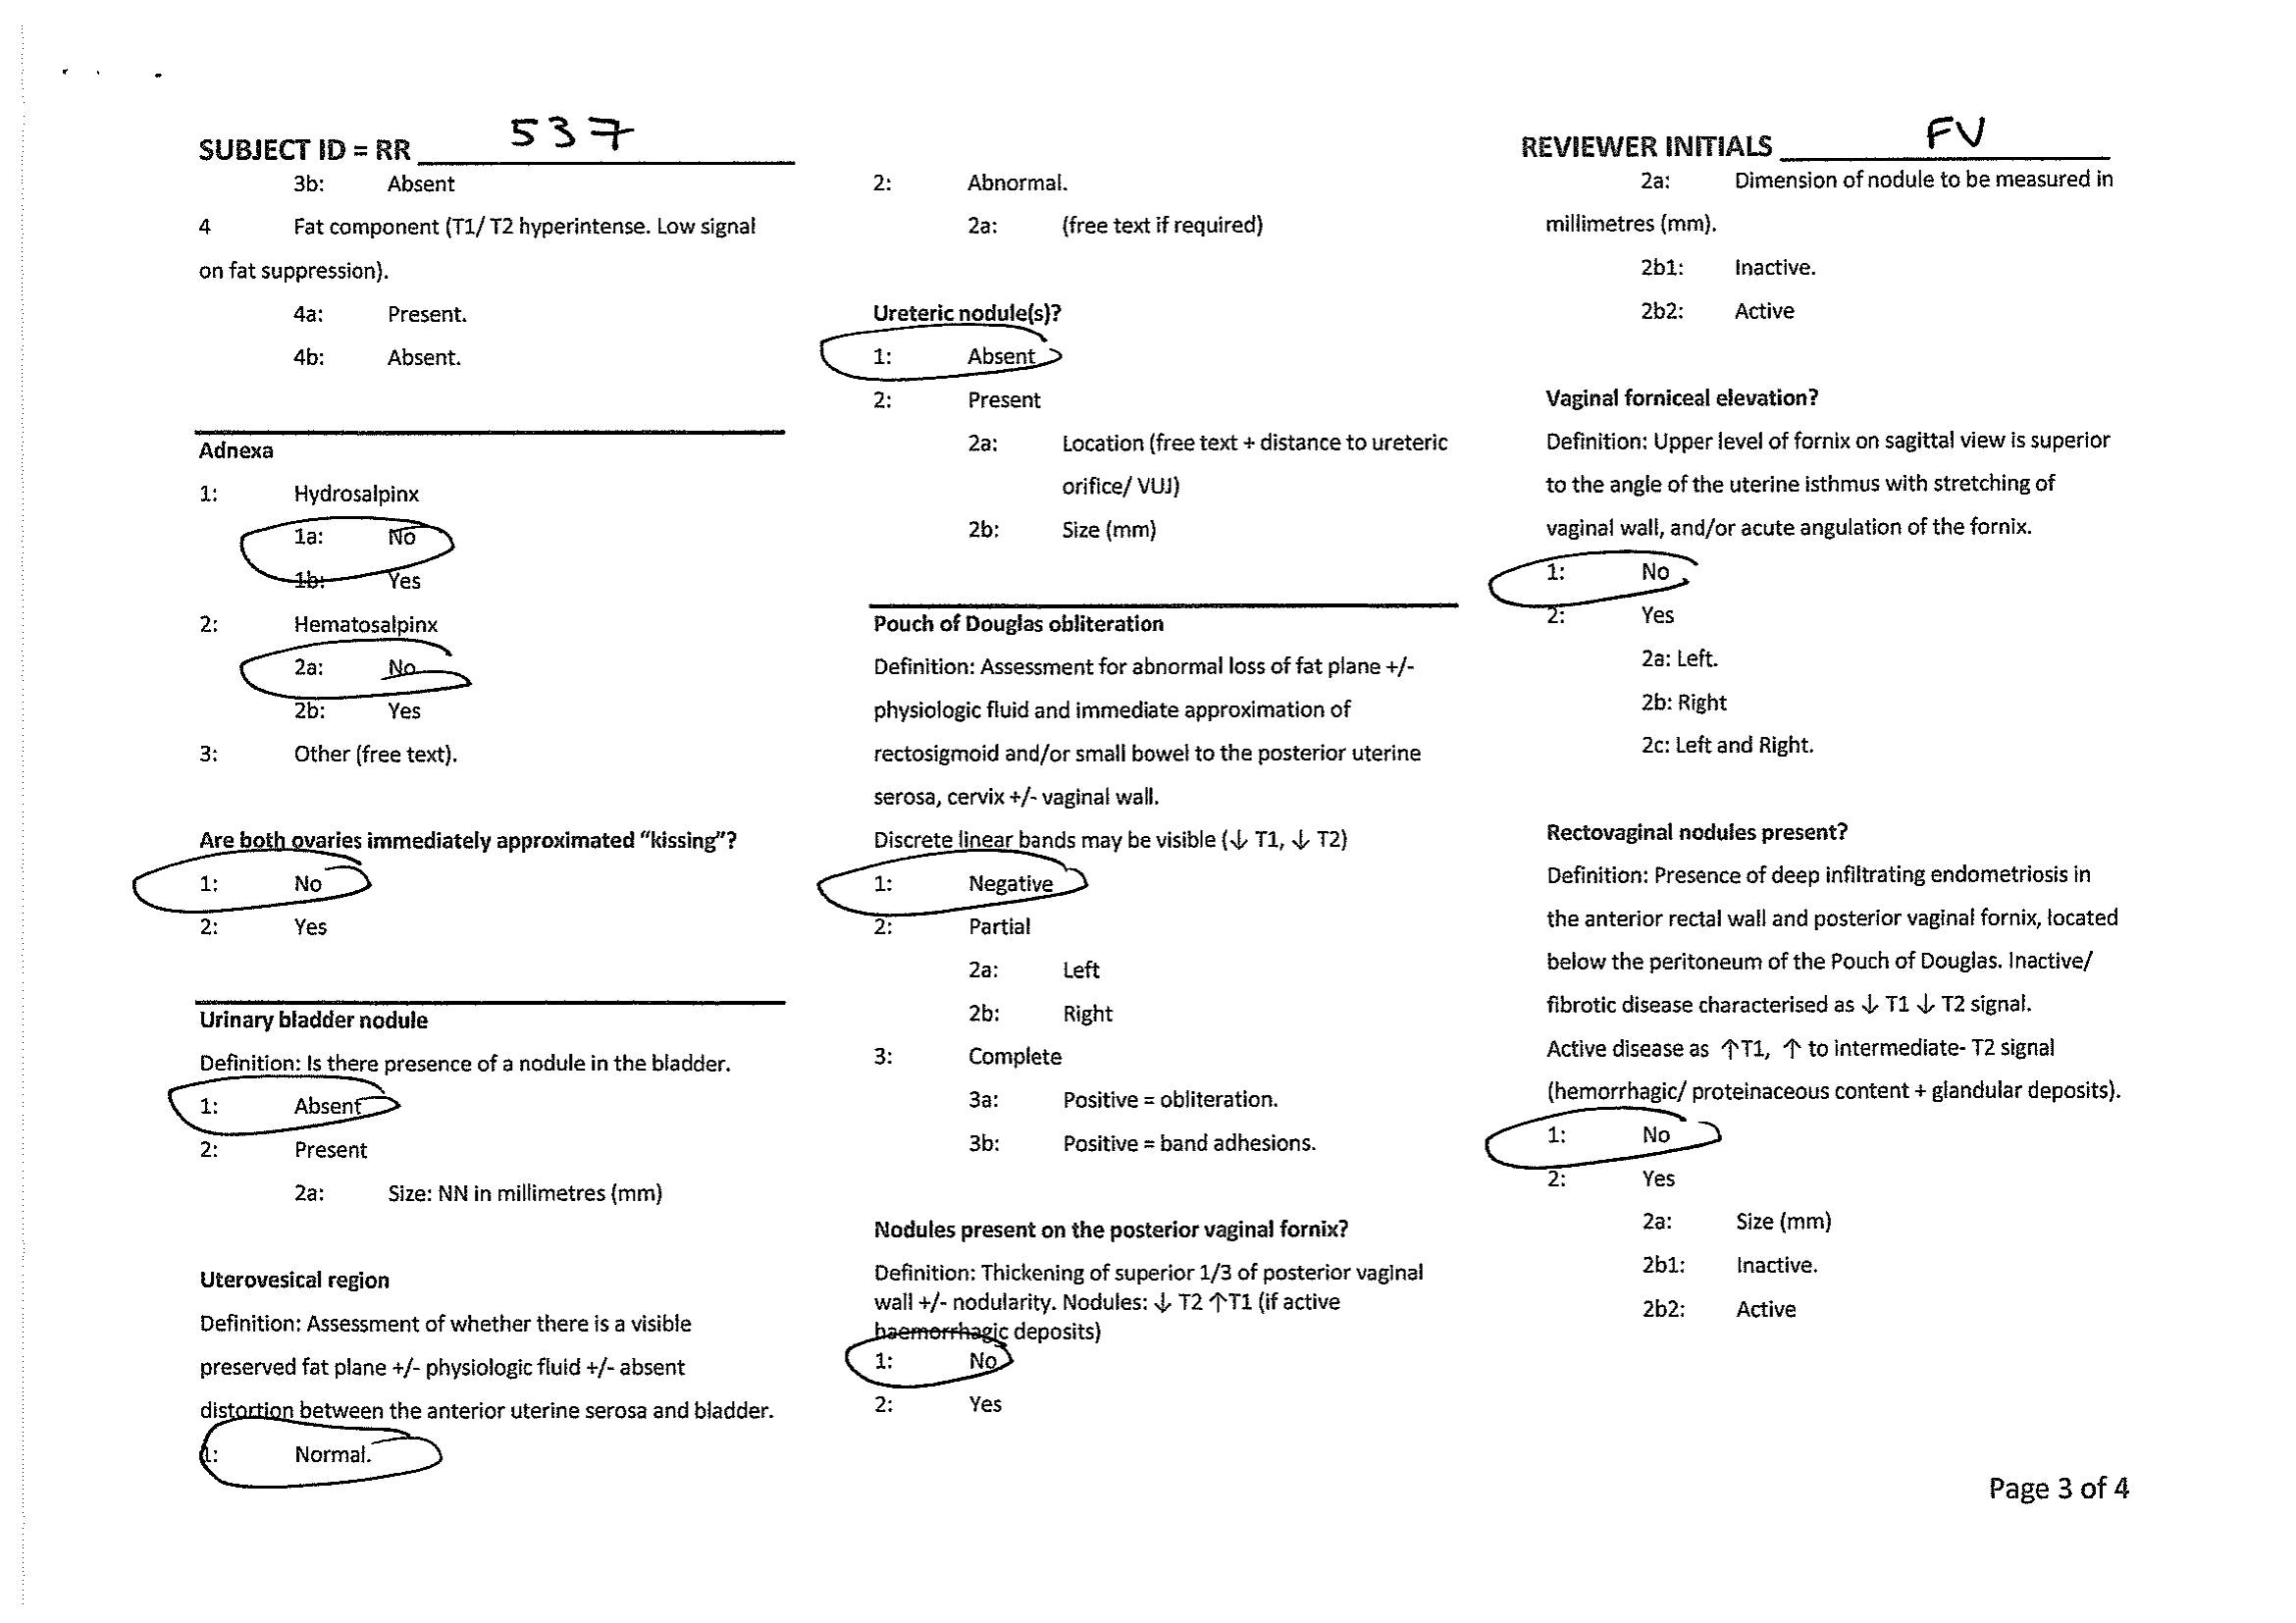 SUBJECT ID = RR 537
REVIEWER INITIALS FV
3b: Absent
4 Fat component (T1/ T2 hyperintense. Low signal
on fat suppression).
4a: Present.
4b: Absent.
Adnexa
1: Hydrosalpinx
1a: No
1b: Yes
2: Hematosalpinx
2a: No
2b: Yes
3: Other (free text).
Are both ovaries immediately approximated “kissing”?
1: No
2: Yes
Urinary bladder nodule
Definition: Is there presence of a nodule in the bladder.
1: Absent
2: Present
2a: Size: NN in millimetres (mm)
Uterovesical region
Definition: Assessment of whether there is a visible
preserved fat plane +/- physiologic fluid +/- absent
distortion between the anterior uterine serosa and bladder.
1: Normal.
2: Abnormal.
2a: (free text if required)
Ureteric nodule(s)?
1: Absent
2: Present
2a: Location (free text + distance to ureteric
orifice/ VUJ)
2b: Size (mm)
Pouch of Douglas obliteration
Definition: Assessment for abnormal loss of fat plane +/-
physiologic fluid and immediate approximation of
rectosigmoid and/or small bowel to the posterior uterine
serosa, cervix +/- vaginal wall.
Discrete linear bands may be visible (↓ T1, ↓ T2)
1: Negative
2: Partial
2a: Left
2b: Right
3: Complete
3a: Positive = obliteration.
3b: Positive = band adhesions.
Nodules present on the posterior vaginal fornix?
Definition: Thickening of superior 1/3 of posterior vaginal
wall +/- nodularity. Nodules: ↓ T2 ↑T1 (if active
haemorrhagic deposits)
1: No
2: Yes
2a: Dimension of nodule to be measured in
millimetres (mm).
2b1: Inactive.
2b2: Active
Vaginal forniceal elevation?
Definition: Upper level of fornix on sagittal view is superior
to the angle of the uterine isthmus with stretching of
vaginal wall, and/or acute angulation of the fornix.
1: No
2: Yes
2a: Left.
2b: Right
2c: Left and Right.
Rectovaginal nodules present?
Definition: Presence of deep infiltrating endometriosis in
the anterior rectal wall and posterior vaginal fornix, located
below the peritoneum of the Pouch of Douglas. Inactive/
fibrotic disease characterised as ↓ T1 ↓ T2 signal.
Active disease as ↑T1, ↑ to intermediate- T2 signal
(hemorrhagic/ proteinaceous content + glandular deposits).
1: No
2: Yes
2a: Size (mm)
2b1: Inactive.
2b2: Active
Page 3 of 4